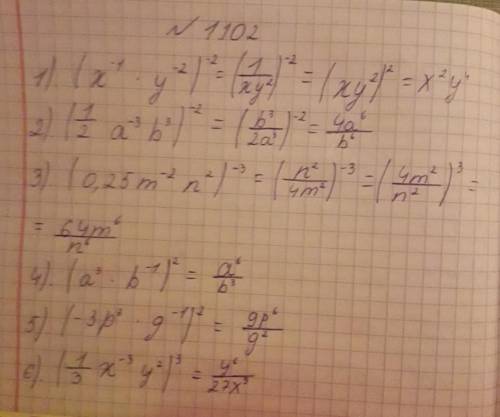 № 1102
1). (x⁻¹ · y⁻²)⁻² = (1/xy²)⁻² = (xy²)² = x²y⁴
2) (1/2 a⁻³ b³)⁻² = (b³/2a³)⁻² = 4a⁶/b⁶
3) (0,25 m⁻² n²)⁻³ = (n²/4m²)⁻³ = (4m²/n²)³ =
= 64m⁶/n⁶
4). (a³ · b⁻¹)² = a⁶/b³
5) (-3p³ · g⁻¹)² = 9p⁶/g²
6). (1/3 x⁻³ y²)³ = y⁶/27x⁹